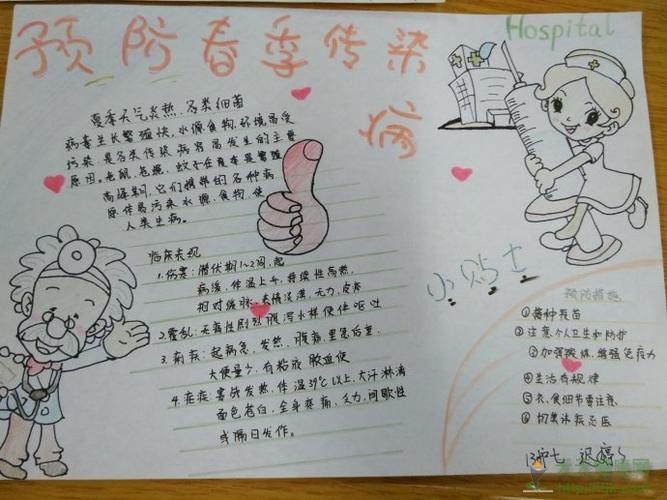 预防春季传染
病
Hospital
夏季天气炎热,各类细菌
病毒生长繁殖快,水源食物,环境易受
污染,是各类传染病容易发生的主要
原因。老鼠、苍蝇、蚊子在夏季是繁殖
高峰期,它们携带的各种病
原体易污染水源、食物,使
人类生病。
临床表现
1.伤寒:潜伏期1~2周,起
病缓,体温上升,持续性高热,
相对缓脉,表情淡漠,无力,皮疹
2.霍乱:无痛性剧烈腹泻水样便伴呕吐
3.痢疾:起病急,发热,腹痛,里急后重,
大便量少,有粘液脓血便
4.疟疾:寒战发热,体温39℃以上,大汗淋漓
面色苍白,全身疼痛,乏力,间歇性
或隔日发作。
小贴士
预防措施
①接种疫苗
②注意个人卫生和防护
③加强锻炼,增强免疫力
④生活有规律
⑤衣、食细节要注意
⑥切莫讳疾忌医